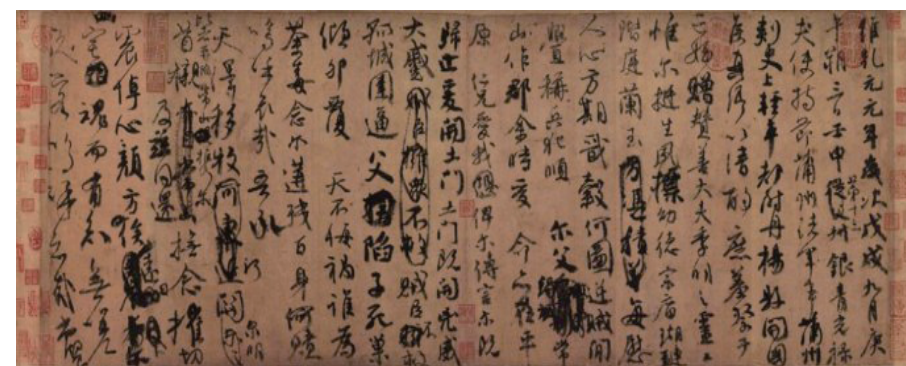 維乾元元年歲次戊戌九月庚
午朔三日壬申第十三從父叔銀青光祿
夫使持節蒲州諸軍事蒲州
刺史上輕車都尉丹楊縣開國
侯真卿以清酌庶羞祭于
亡姪贈贊善大夫季明之靈曰
惟爾挺生夙標幼德宗廟瑚璉
階庭蘭玉方憑積善每慰
人心方期戩穀何圖逆賊間
釁稱兵犯順爾父竭誠常
山作郡余時受命亦在平
原仁兄愛我俾爾傳言爾既
歸止爰開土門土門既開凶威
大蹙賊臣擁眾不救賊臣不救
孤城圍逼父陷子死巢
傾卵覆天不悔禍誰為
荼毒念爾遘殘百身何贖
嗚呼哀哉吾承
天澤移牧河東近河關泉明
比者再陷常山攜爾
首櫬及茲同還撫念摧切
震悼心顏方俟遠日卜爾
幽宅魂而有知無嗟
久客嗚呼哀哉尚饗